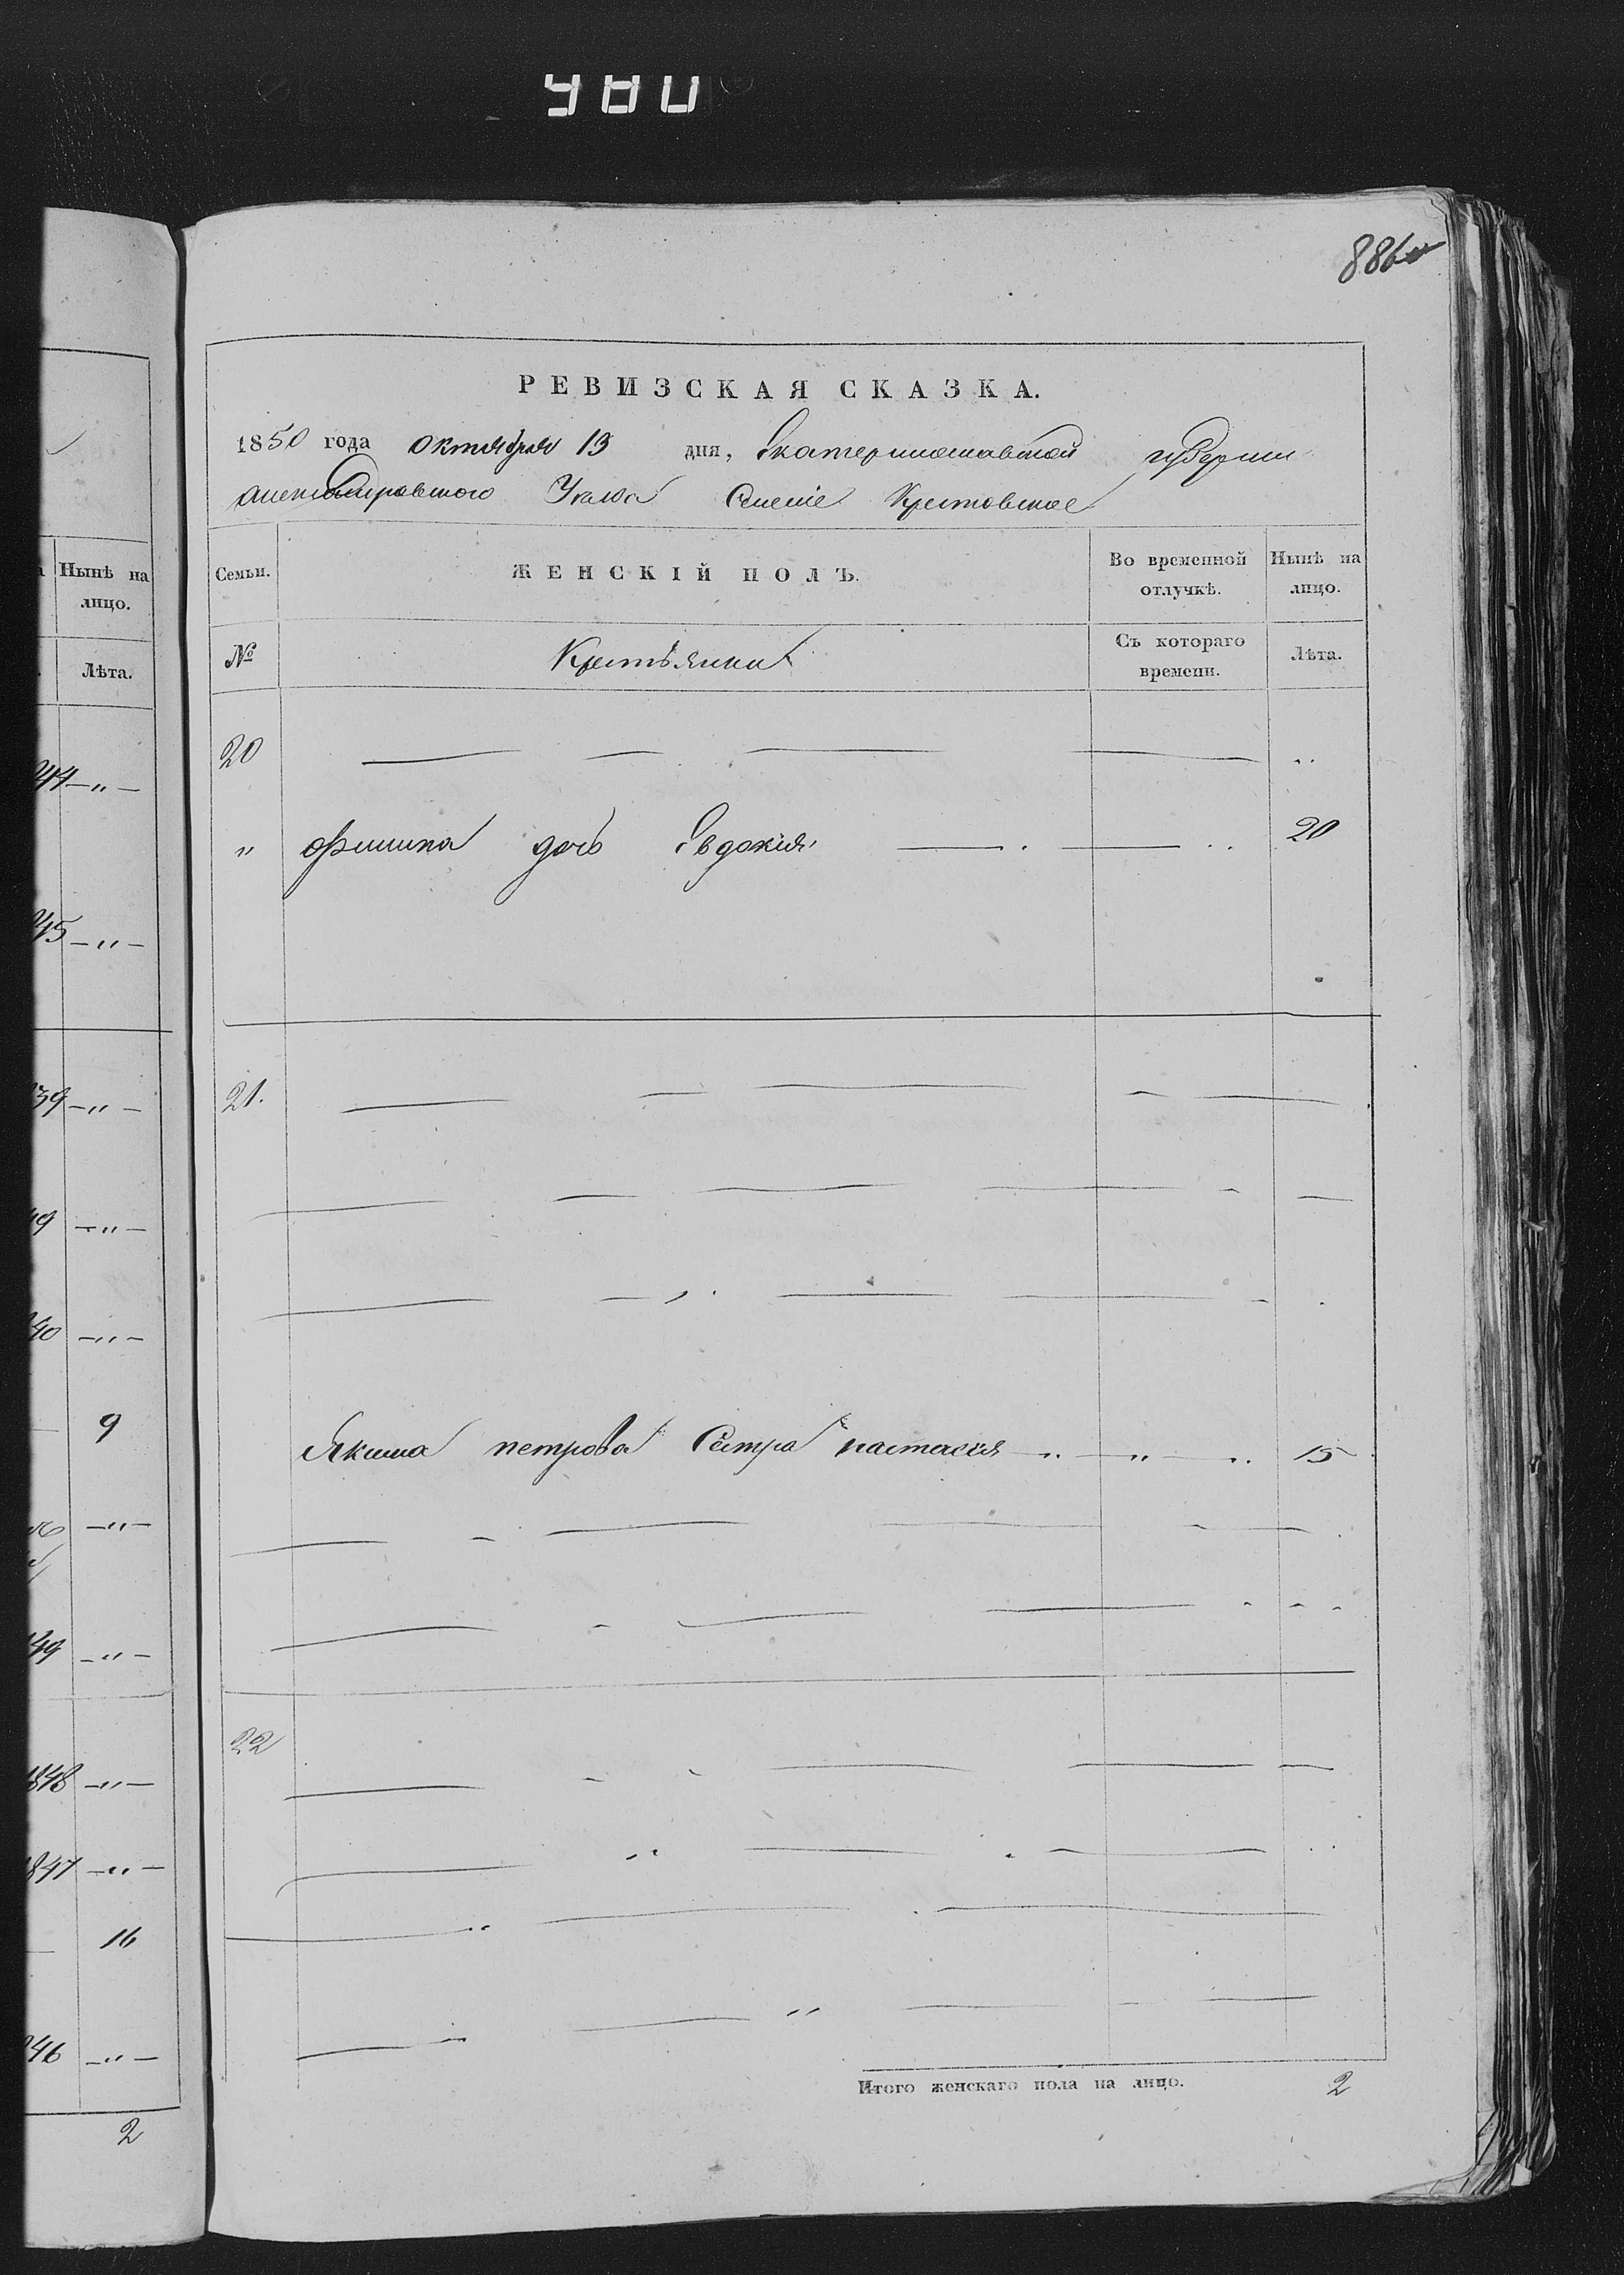 980
886
РЕВИЗСКАЯ СКАЗКА.
1850 года октября 13 дня, Екатеринославской губернии
Александровского Уезда Селение Крестовское
Нынѣ на
лицо.
Лѣта.
Семьи.
ЖЕНСКІЙ ПОЛЪ.
Во временной
отлучкѣ.
Нынѣ на
лицо.
№
Крестьянки
Съ котораго
времени.
Лѣта.
20
" дочь Евдокия 20
21.
Якима петрова Сестра настасия 15
22
Итого женскаго пола на лицо. 2
44 — " —
45 — " —
39 — " —
49 — " —
40 — " —
9
— " —
49 — " —
1848 — " —
1847 — " —
16
46 — " —
2